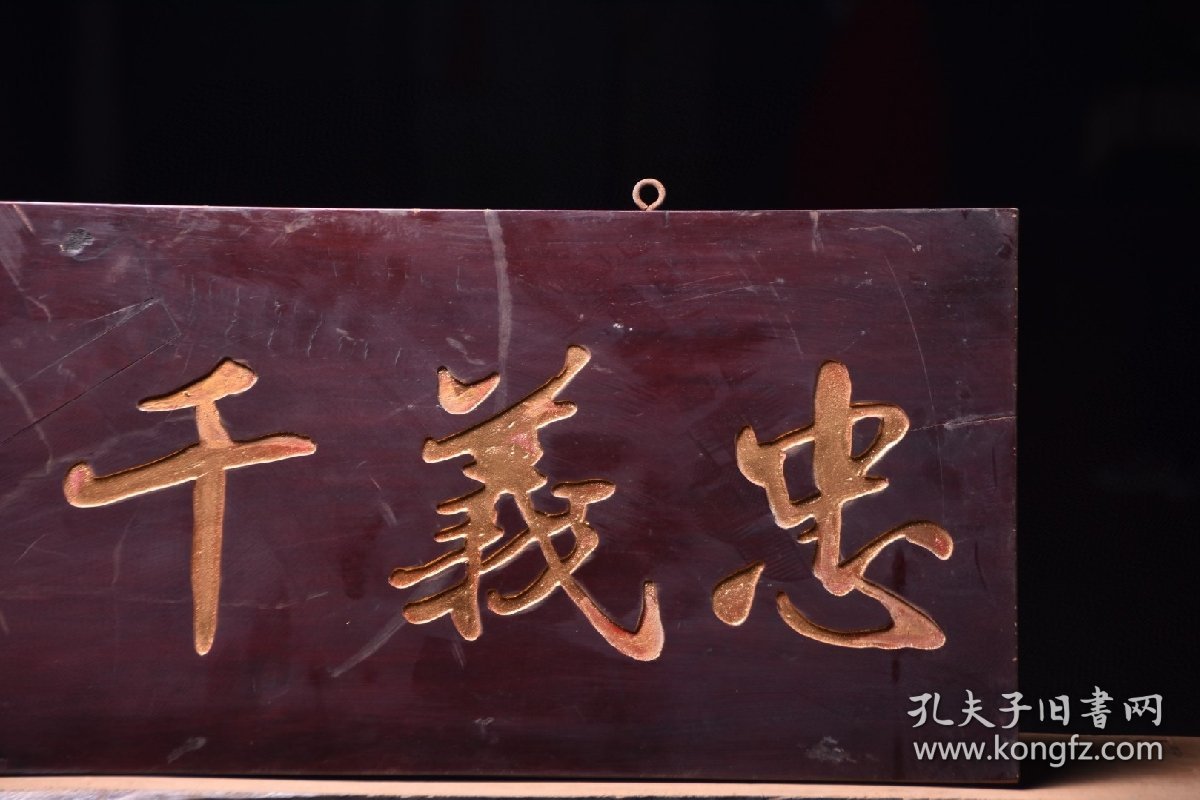 忠義千
孔夫子旧書网
www.kongfz.com